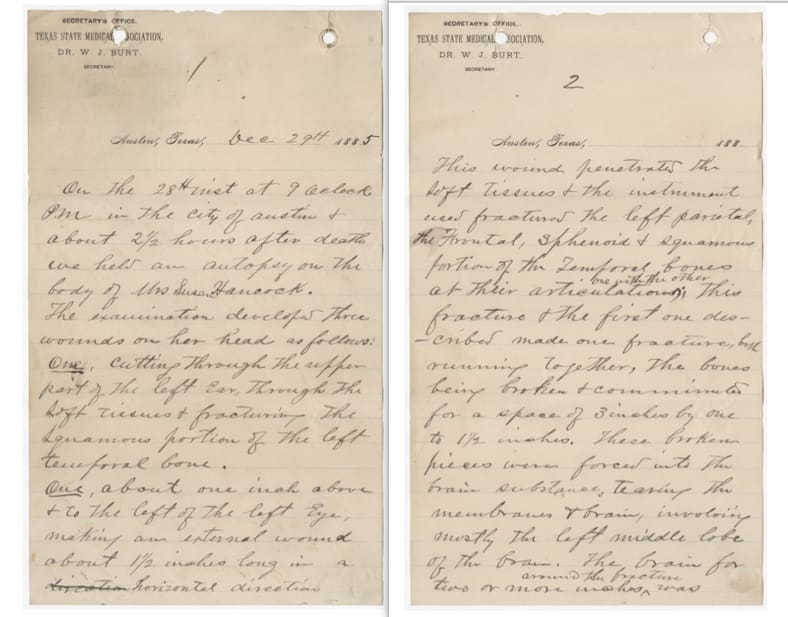 SECRETARY'S OFFICE.
TEXAS STATE MEDICAL ASSOCIATION.
DR. W. J. BURT.
SECRETARY.
1
Austin, Texas, Dec 29th 1885
On the 28th inst at 9 Oclock
P.M. in the city of Austin &
about 2½ hours after death
we held an autopsy on the
body of Mrs Susan Hancock.
The examination developed three
wounds on her head as follows:
One, cutting through the upper
part of the left Ear, through the
soft tissues & fracturing the
squamous portion of the left
temporal bone.
One, about one inch above
& to the left of the left Eye,
making an external wound
about 1½ inches long in a
direction horizontal direction
SECRETARY'S OFFICE.
TEXAS STATE MEDICAL ASSOCIATION.
DR. W. J. BURT.
SECRETARY.
2
Austin, Texas, 188
This wound penetrated the
soft tissues & the instrument
used fractured the left parietal,
the Frontal, Sphenoid & squamous
portion of the Temporal bones
at their articulations one with the other; This
fracture & the first one des-
-cribed made one fracture, both
running together, the bones
being broken & comminuted
for a space of 3 inches by one
to 1½ inches. These broken
pieces were forced into the
brain substance, tearing the
membranes & brain, involving
mostly the left middle lobe
of the brain. The brain for
two or more inches around the fracture was